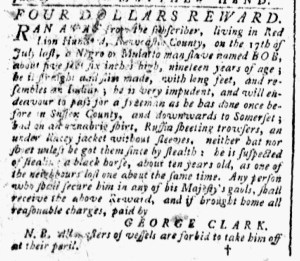 FOUR DOLLARS REWARD.
RAN AWAY from the subscriber, living in Red
Lion Hundred, Newcastle County, on the 17th of
July last, a Negro or Mulatto man slave named BOB,
about five feet six inches high, nineteen years of age;
he is straight and slim made, with long feet, and re-
sembles an Indian; he is very impudent, and will en-
deavour to pass for a freeman as he has done once be-
fore in Sussex County, and downwards to Somerset;
had on an oznabrig shirt, Russia sheeting trowsers, an
under jacket without sleeves, neither hat nor
shoes unless he got them since by stealth; he is suspected
of stealing a black horse, about ten years old, as one of
the neighbours lost one about the same time. Any person
who shall secure him in any of his Majesty's gaols, shall
receive the above Reward, and if brought home all
reasonable charges, paid by
GEORGE CLARK.
N. B. All masters of vessels are forbid to take him off
at their peril. †